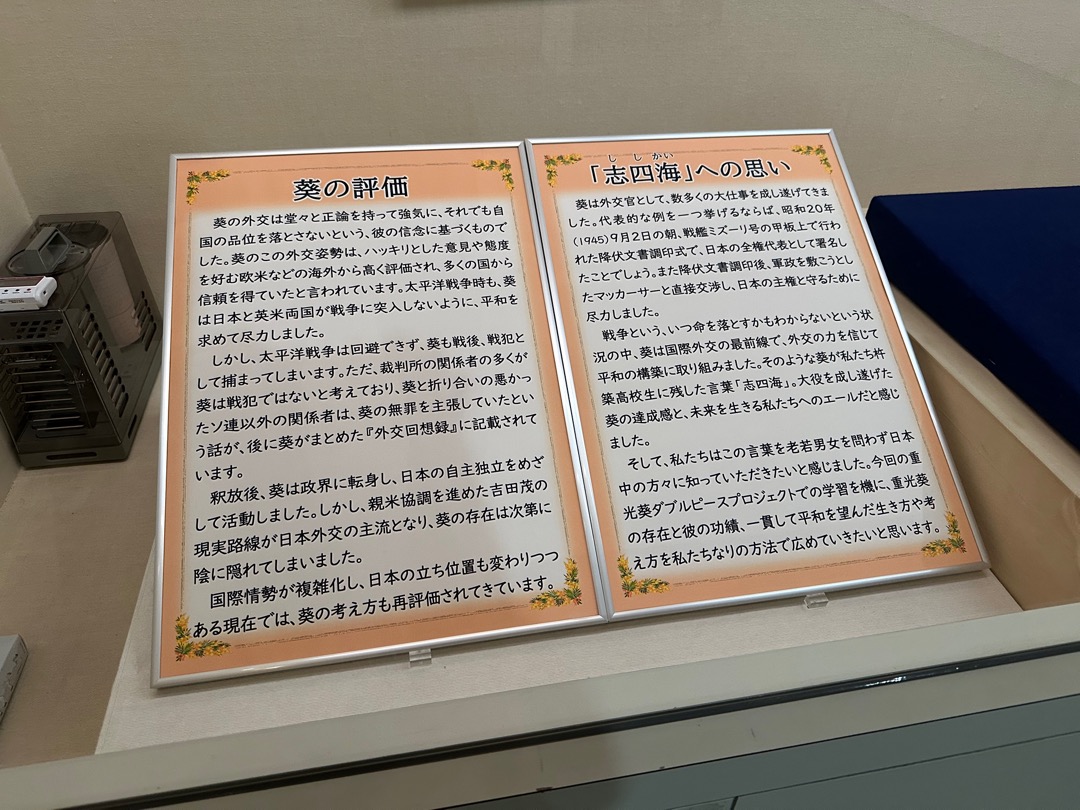 葵の評価
葵の外交は堂々と正論を持って強気に、それでも自
国の品位を落とさないという、彼の信念に基づくもので
した。葵のこの外交姿勢は、ハッキリとした意見や態度
を好む欧米などの海外から高く評価され、多くの国から
信頼を得ていたと言われています。太平洋戦争時も、葵
は日本と英米両国が戦争に突入しないように、平和を
求めて尽力しました。
しかし、太平洋戦争は回避できず、葵も戦後、戦犯と
して捕まってしまいます。ただ、裁判所の関係者の多くが
葵は戦犯ではないと考えており、葵と折り合いの悪かっ
たソ連以外の関係者は、葵の無罪を主張していたとい
う話が、後に葵がまとめた『外交回想録』に記載されて
います。
釈放後、葵は政界に転身し、日本の自主独立をめざ
して活動しました。しかし、親米協調を進めた吉田茂の
現実路線が日本外交の主流となり、葵の存在は次第に
陰に隠れてしまいました。
国際情勢が複雑化し、日本の立ち位置も変わりつつ
ある現在では、葵の考え方も再評価されてきています。
ししかい
「志四海」への思い
葵は外交官として、数多くの大仕事を成し遂げてきま
した。代表的な例を一つ挙げるならば、昭和20年
(1945)9月2日の朝、戦艦ミズーリ号の甲板上で行わ
れた降伏文書調印式で、日本の全権代表として署名し
たことでしょう。また降伏文書調印後、軍政を敷こうとし
たマッカーサーと直接交渉し、日本の主権と守るために
尽力しました。
戦争という、いつ命を落とすかもわからないという状
況の中、葵は国際外交の最前線で、外交の力を信じて
平和の構築に取り組みました。そのような葵が私たち杵
築高校生に残した言葉「志四海」。大役を成し遂げた
葵の達成感と、未来を生きる私たちへのエールだと感じ
ました。
そして、私たちはこの言葉を老若男女を問わず日本
中の方々に知っていただきたいと感じました。今回の重
光葵ダブルピースプロジェクトでの学習を機に、重光葵
の存在と彼の功績、一貫して平和を望んだ生き方や考
え方を私たちなりの方法で広めていきたいと思います。